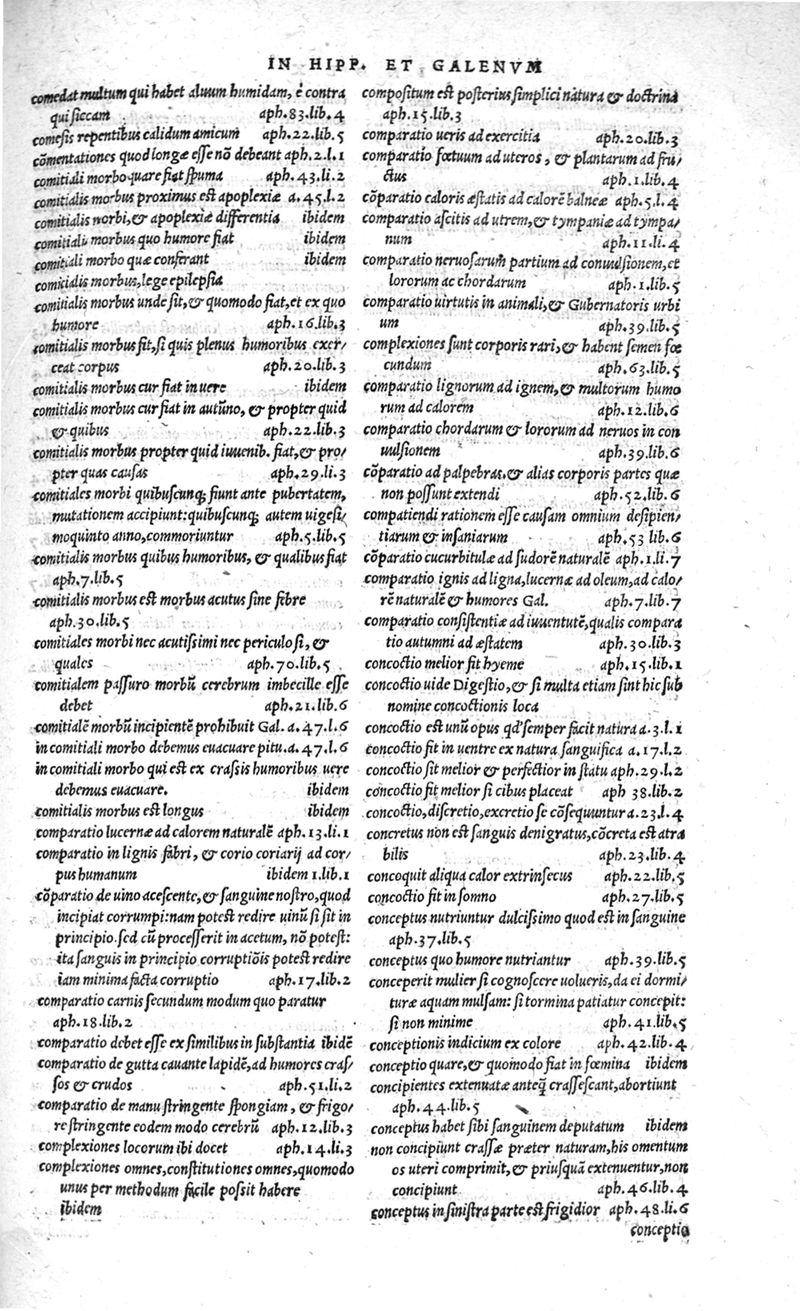 IN HIPP. ET GALENVM
comedat multum qui habet aluum humidam, è contra
qui siccam aph.83.lib.4
comesis repentibus calidum amicum aph.22.lib.5
cõmentationes quod longæ esse nõ debeant aph.2.l.1
comitiali morbo quare fiat spuma aph.43.li.2
comitialis morbus proximus est apoplexiæ a.45.l.2
comitialis morbi,& apoplexiæ differentia ibidem
comitialis morbus quo humore fiat ibidem
comitiali morbo quæ conferant ibidem
comitialis morbus,lege epilepsia
comitialis morbus unde sit,& quomodo fiat,et ex quo
humore aph.16.lib.3
comitialis morbus fit,si quis plenus humoribus exer/
ceat corpus aph.20.lib.3
comitialis morbus cur fiat in uere ibidem
comitialis morbus cur fiat in autũno, & propter quid
& quibus aph.22.lib.3
comitialis morbus propter quid iuuenib. fiat,& pro/
pter quas causas aph.29.li.3
comitiales morbi quibuscunq; fiunt ante pubertatem,
mutationem accipiunt:quibuscunq; autem uigesi/
moquinto anno,commoriuntur aph.5.lib.5
comitialis morbus quibus humoribus, & qualibus fiat
aph.7.lib.5
comitialis morbus est morbus acutus sine febre
aph.30.lib.5
comitiales morbi nec acutissimi nec periculosi, &
quales aph.70.lib.5
comitialem passuro morbũ cerebrum imbecille esse
debet aph.21.lib.6
comitialẽ morbũ incipientẽ prohibuit Gal. a.47.l.6
in comitiali morbo debemus euacuare pitu.a.47.l.6
in comitiali morbo qui est ex crassis humoribus uere
debemus euacuare. ibidem
comitialis morbus est longus ibidem
comparatio lucernæ ad calorem naturalẽ aph.13.li.1
comparatio in lignis fabri, & corio coriarij ad cor/
pus humanum ibidem 1.lib.1
cõparatio de uino acescente,& sanguine nostro,quod
incipiat corrumpi:nam potest redire uinũ si sit in
principio.sed cũ processerit in acetum, nõ potest:
ita sanguis in principio corruptiõis potest redire
iam minima facta corruptio aph.17.lib.2
comparatio carnis secundum modum quo paratur
aph.18.lib.2
comparatio debet esse ex similibus in substantia ibidẽ
comparatio de gutta cauante lapidẽ,ad humores cras/
sos & crudos aph.51.li.2
comparatio de manu stringente spongiam, & frigo/
re stringente eodem modo cerebrũ aph.12.lib.3
complexiones locorum ibi docet aph.14.li.3
complexiones omnes,constitutiones omnes,quomodo
unus per methodum facile possit habere
ibidem
compositum est posterius simplici natura & doctrina
aph.15.lib.3
comparatio ueris ad exercitia aph.20.lib.3
comparatio fœtuum ad uteros, & plantarum ad fru/
ctus aph.1.lib.4
cõparatio caloris æstatis ad calorẽ balneæ aph.5.l.4
comparatio ascitis ad utrem,& tympaniæ ad tympa/
num aph.11.li.4
comparatio neruosarum partium ad conuulsionem,et
lororum ac chordarum aph.1.lib.5
comparatio uirtutis in animali,& Gubernatoris urbi
um aph.39.lib.5
complexiones sunt corporis rari,& habent semen fœ
cundum aph.63.lib.5
comparatio lignorum ad ignem,& multorum humo
rum ad calorem aph.12.lib.6
comparatio chordarum & lororum ad neruos in con
uulsionem aph.39.lib.6
cõparatio ad palpebras,& alias corporis partes quæ
non possunt extendi aph.52.lib.6
compatiendi rationem esse causam omnium desipien/
tiarum & insaniarum aph.53 lib.6
cõparatio cucurbitulæ ad sudorẽ naturalẽ aph.1.li.7
comparatio ignis ad ligna,lucernæ ad oleum,ad calo/
rẽ naturalẽ & humores Gal. aph.7.lib.7
comparatio consistentiæ ad iuuentutẽ,qualis compara
tio autumni ad æstatem aph.30.lib.3
concoctio melior fit hyeme aph.15.lib.1
concoctio uide Digestio,& si multa etiam sint hic sub
nomine concoctionis loca
concoctio est unũ opus qd' semper facit natura a.3.l.1
concoctio fit in uentre ex natura sanguifica a.17.l.2
concoctio fit melior & perfectior in statu aph.29.l.2
concoctio fit melior si cibus placeat aph 38.lib.2
concoctio,discretio,excretio se cõsequuntur a.23.l.4
concretus non est sanguis denigratus,cõcreta est atra
bilis aph.23.lib.4
concoquit aliqua calor extrinsecus aph.22.lib.5
concoctio fit in somno aph.27.lib.5
conceptus nutriuntur dulcissimo quod est in sanguine
aph.37.lib.5
conceptus quo humore nutriantur aph.39.lib.5
conceperit mulier si cognoscere uolueris,da ei dormi/
turæ aquam mulsam: si tormina patiatur concepit:
si non minime aph.41.lib.5
conceptionis indicium ex colore aph.42.lib.4
conceptio quare,& quomodo fiat in fœmina ibidem
concipientes extenuatæ anteq̃ crassescant,abortiunt
aph.44.lib.5
conceptus habet sibi sanguinem deputatum ibidem
non concipiunt crassæ præter naturam,his omentum
os uteri comprimit,& priusquã extenuentur,non
concipiunt aph.46.lib.4
conceptus in sinistra parte est frigidior aph.48.li.6
conceptio